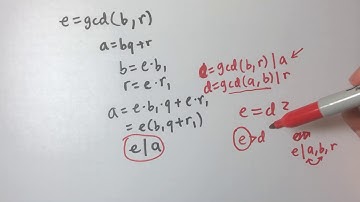 e=gcd(b,r)
a=bq+r
b=e·b₁
r=e·r₁
a=e·b₁·q+e·r₁
=e(b₁q+r₁)
e|a
e=gcd(b,r)|a
d=gcd(a,b)|r
e=d?
e>d
e|a,b,r